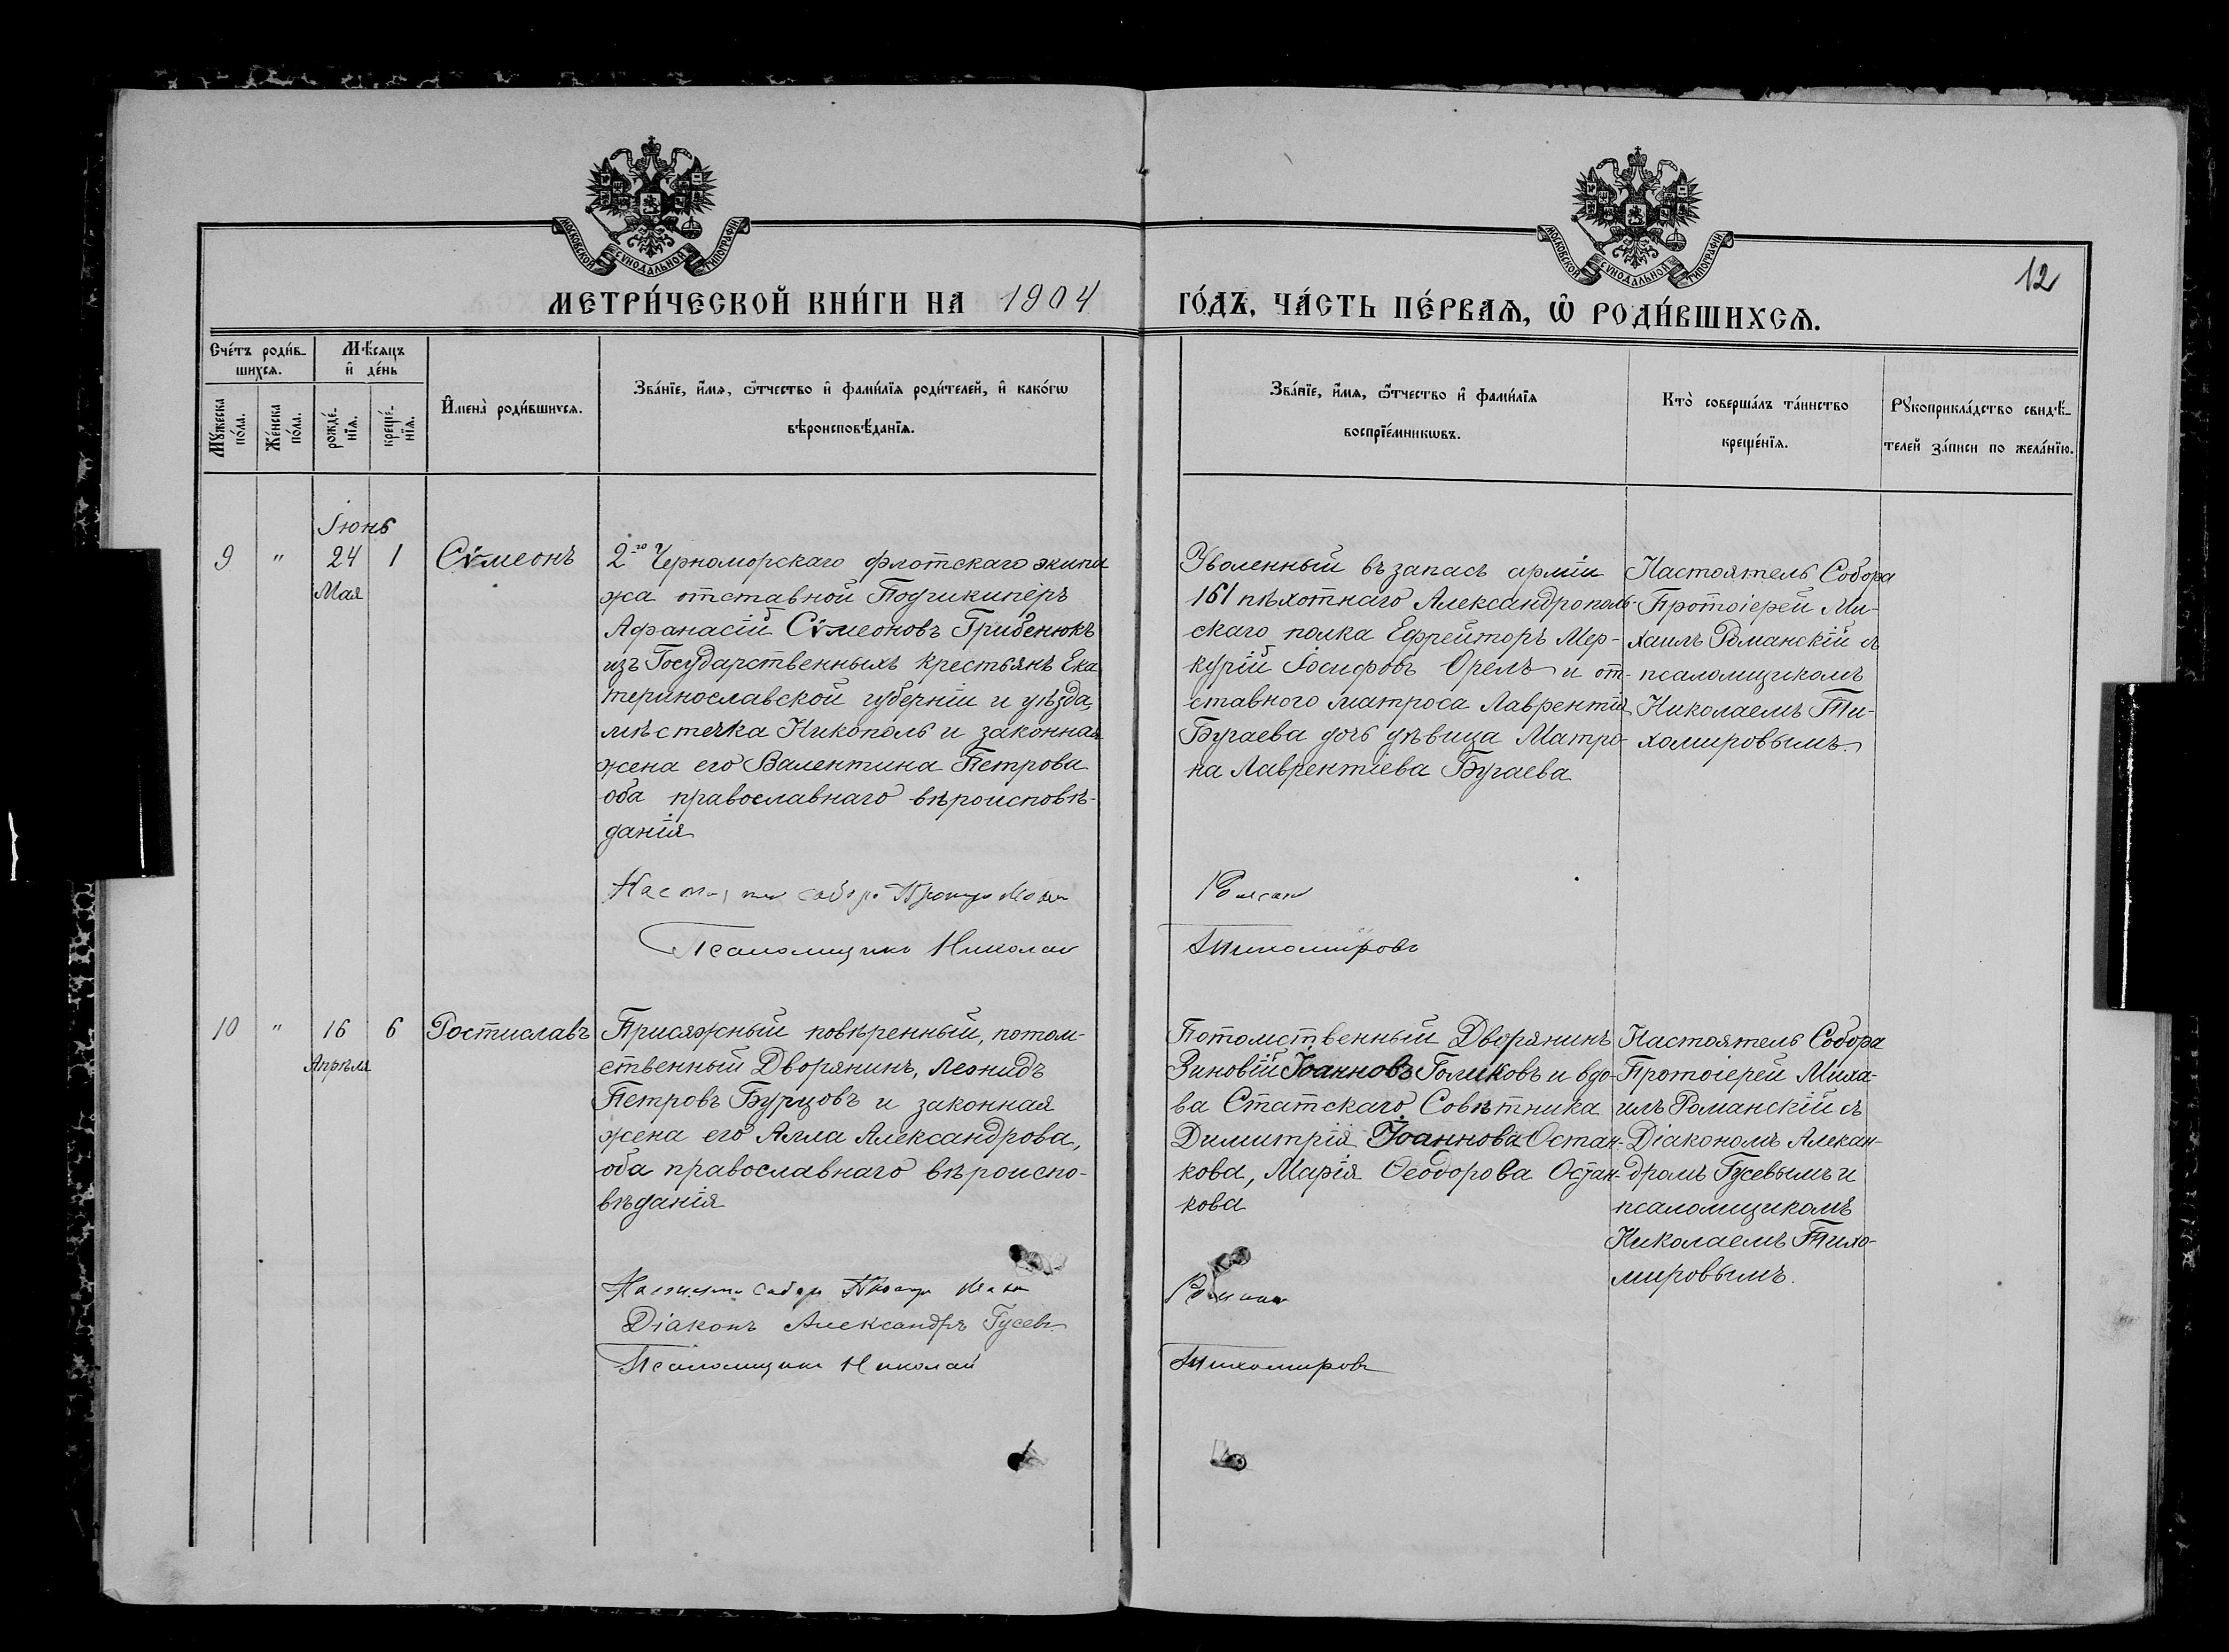 МОСКОВСКОЙ СѴНОДАЛЬНОЙ ТИПОГРАФІИ
МОСКОВСКОЙ СѴНОДАЛЬНОЙ ТИПОГРАФІИ
12
МЕТРИ́ЧЕСКОЙ КНИ́ГИ НА 1904
ГО́ДЪ, ЧА́СТЬ ПЕ́РВАѦ, Ѡ РОДИ́ВШИХСѦ.
Сче́тъ роди́в-
шихсѧ.
Мꙋ́жеска
по́ла.
Же́нска
по́ла.
Мѣ́сѧцъ
и҆ де́нь
рожде́-
нїѧ.
креще́-
нїѧ.
И҆мена̀ роди́вшихсѧ.
Зва́нїе, и҆́мѧ, ѻ҆́тчество и҆ фами́лїѧ роди́телей, и҆ како́гѡ
вѣроисповѣ́данїѧ.
Зва́нїе, и҆́мѧ, ѻ҆́тчество и҆ фами́лїѧ
воспрїе́мникѡвъ.
Кто̀ соверша́лъ та́инство
креще́нїѧ.
Рꙋкоприкла́дство свидѣ́-
телей за́писи по жела́нїю.
Іюнь
9 " 24 1 Сѵмеонъ
Мая
2го Черноморскаго флотскаго экипа
жа отставной Подшкиперъ
Афанасій Сѵмеоновъ Грибенюкъ
изъ Государственныхъ крестьянъ Ека
теринославской губерніи и уѣзда,
мѣстечка Никополь и законная
жена его Валентина Петрова
оба православнаго вѣроисповѣ-
данія
Уволенный въ запасъ арміи
161 пѣхотнаго Александрополь-
скаго полка Ефрейторъ Мер-
курій Іосифовъ Орелъ и от-
ставного матроса Лаврентія
Бугаева дочь дѣвица Матро-
на Лаврентіева Бугаева
Настоятель Собора
Протоіерей Ми-
хаилъ Романскій съ
псаломщикомъ
Николаемъ Ти-
хомировымъ.
Псаломщикъ Николай
Тихомировъ
10 " 16 6 Ростиславъ
Апрѣля
Присяжный повѣренный, потом-
ственный Дворянинъ, Леонидъ
Петровъ Бурцовъ и законная
жена его Алла Александрова,
оба православнаго вѣроиспо-
вѣданія
Потомственный Дворянинъ
Зиновій Іоанновъ Голиковъ и вдо-
ва Статскаго Совѣтника
Димитрія Іоаннова Остан-
кова, Марія Ѳеодорова Остан-
кова
Настоятель Собора
Протоіерей Миха-
илъ Романскій съ
Діакономъ Алекан-
дромъ Гусевымъ и
псаломщикомъ
Николаемъ Тихо-
мировымъ.
Діаконъ Александръ Гусевъ
Псаломщикъ Николай
Тихомировъ